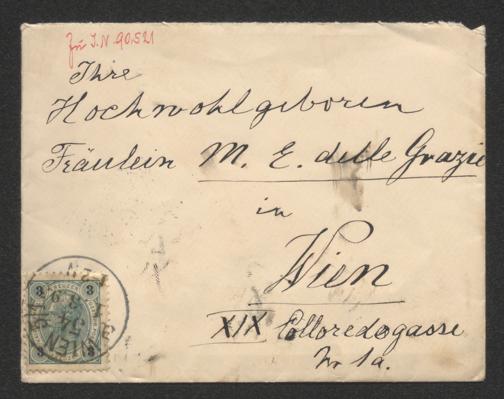 Zu I.N. 90.521
Ihre
Hochwohlgeboren
Fräulein M. E. delle Grazie
in
Wien
XIX Colloredogasse
Nr 1a.
3 3
WIEN